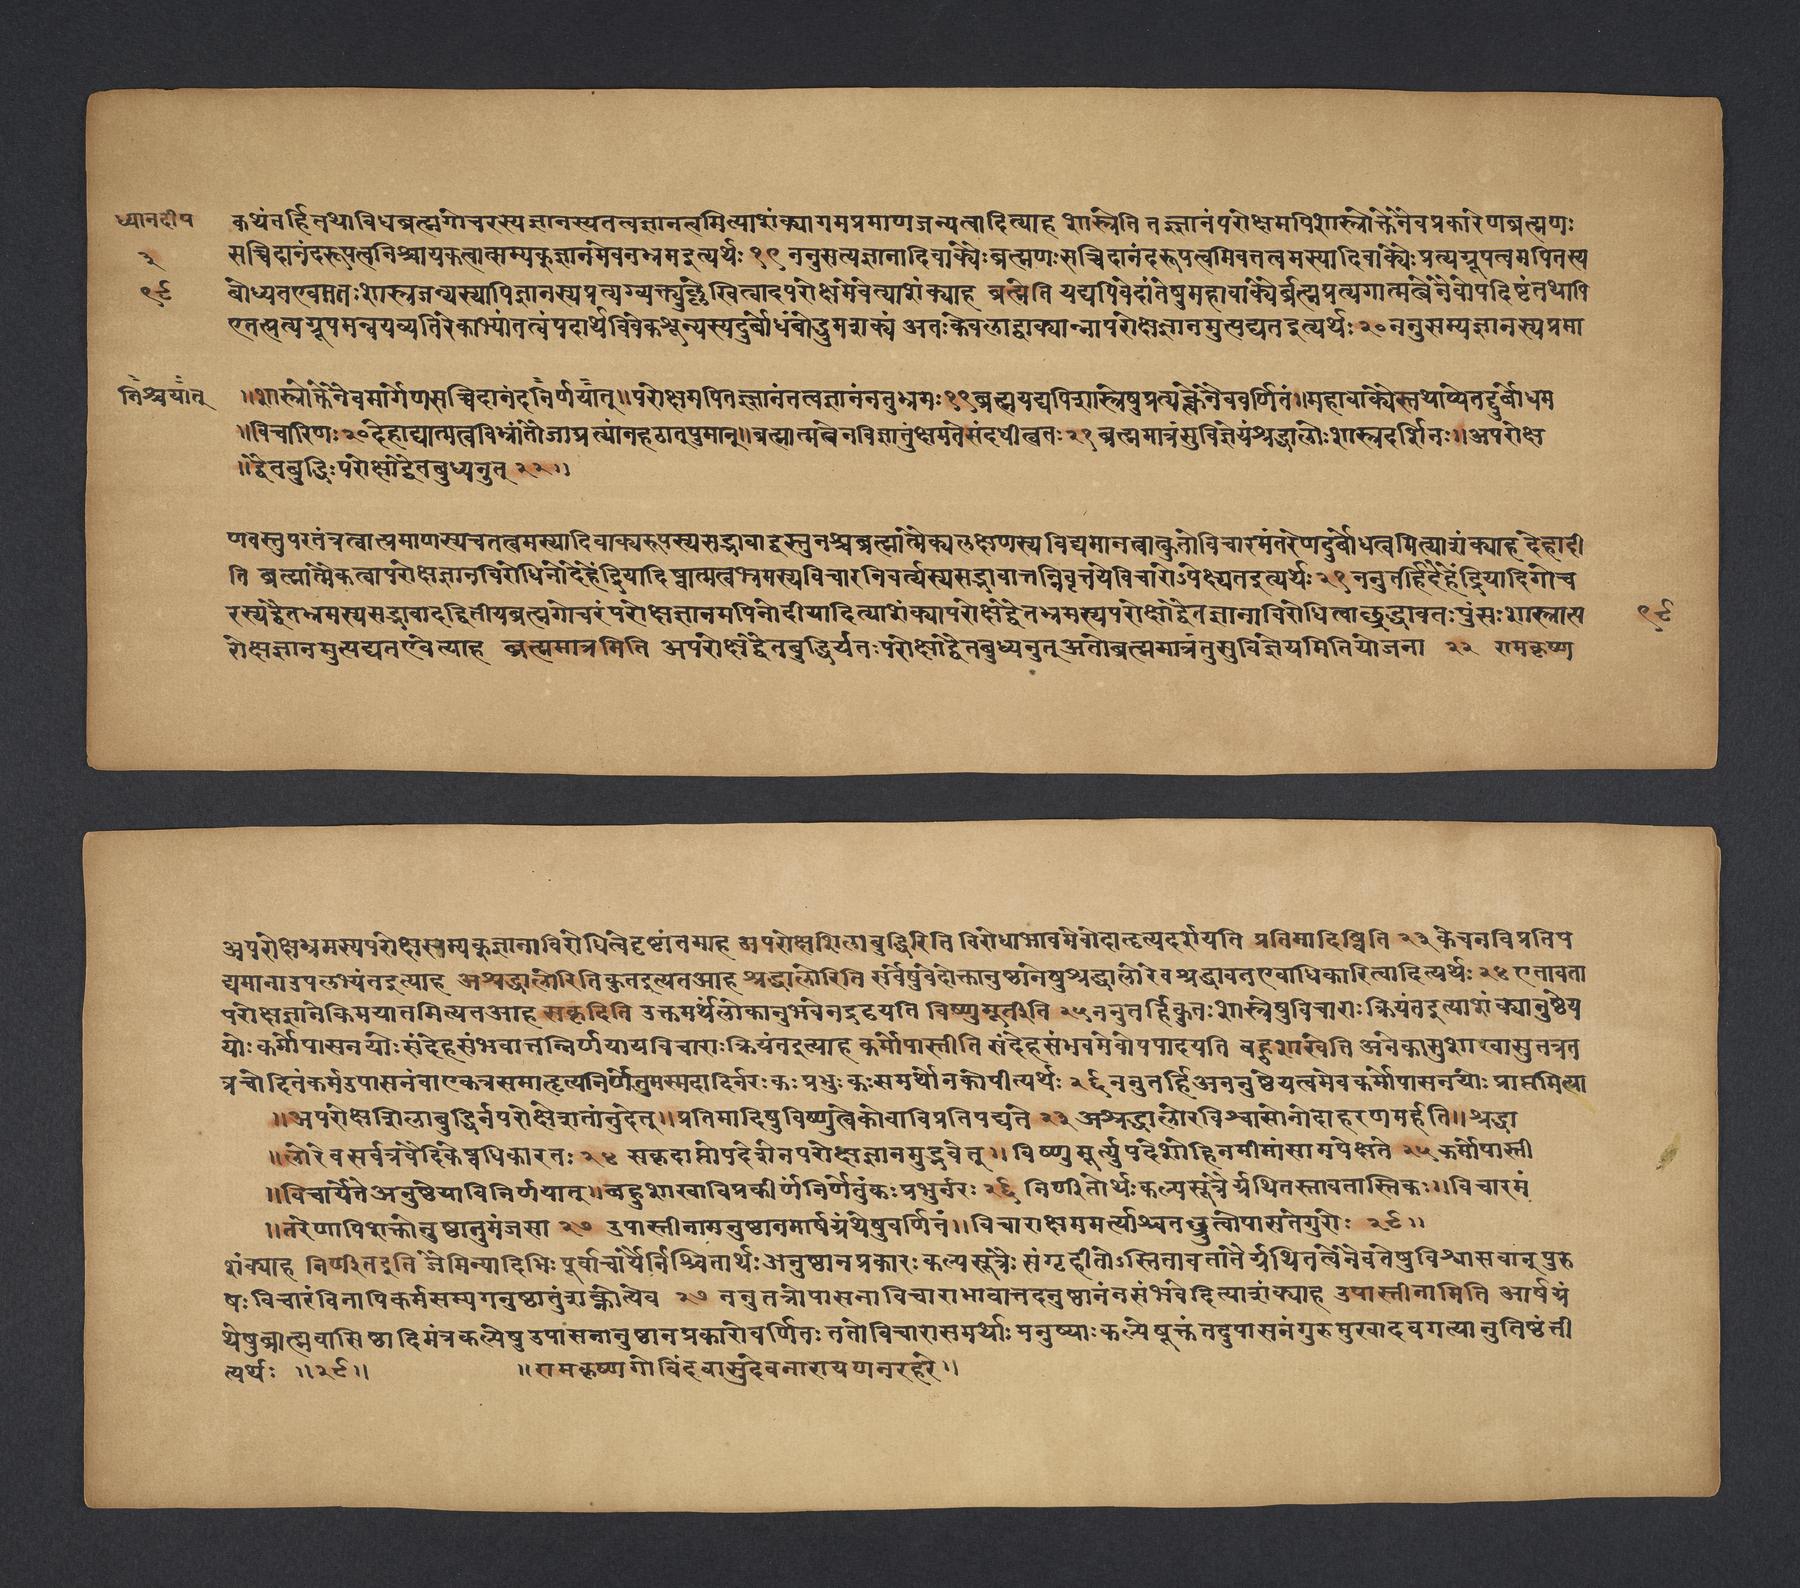 ध्यानदीप
कथंतर्हितथाविधब्रह्मगोचरस्यज्ञानस्यतत्वज्ञानत्वमित्याशंक्यागमप्रमाणजन्यत्वादित्याह शास्त्रेति तज्ज्ञानंपरोक्षमपिशास्त्रोक्तेनैवप्रकारेणब्रह्मणः
२
सच्चिदानंदरूपत्वनिश्चायकत्वात्सम्यक्ज्ञानमेवनभ्रमइत्यर्थः १९ ननुसत्यज्ञानादिवाक्यैःब्रह्मणःसच्चिदानंदरूपत्वमिवतत्वमस्यादिवाक्यैःप्रत्यग्रूपत्वमपितस्य
१८
बोध्यतएवमतःशास्त्रजन्यस्यापिज्ञानस्यप्रत्यग्व्यक्त्युल्लेखित्वादपरोक्षमेवेत्याशंक्याह ब्रह्मेति यद्यपिवेदांतेषुमहावाक्यैर्ब्रह्मप्रत्यगात्मत्वेनैवोपदिष्टंतथापि
एतत्प्रत्यग्रूपमन्वयव्यतिरेकाभ्यांतत्वंपदार्थविवेकशून्यस्यदुर्बोधंबोद्धुमशक्यं अतःकेवलाद्वाक्यान्नापरोक्षज्ञानमुत्पद्यतइत्यर्थः २० ननुसम्यग्ज्ञानस्यप्रमा
निश्चयात्
॥शास्त्रोक्तेनैवमार्गेणसच्चिदानंदनिर्णयात्॥परोक्षमपितज्ज्ञानंतत्वज्ञानंनतुभ्रमः १९ ब्रह्मयद्यपिशास्त्रेषुप्रत्यक्त्वेनैववर्णितं॥महावाक्यैस्तथाप्येतद्दुर्बोधम
॥विचारिणः २० देहाद्यात्मत्वविभ्रांतौजाग्रत्यांनहठात्पुमान्॥ब्रह्मात्मत्वेनविज्ञातुंक्षमतेमंदधीत्वतः २१ ब्रह्ममात्रंसुविज्ञेयंश्रद्धालोःशास्त्रदर्शिनः॥अपरोक्ष
॥द्वैतबुद्धिःपरोक्षाद्वैतबुध्यनुत् २२॥
णवस्तुपरतंत्रत्वात्प्रमाणस्यचतत्वमस्यादिवाक्यरूपस्यसद्भावाद्वस्तुनश्चब्रह्मात्मैक्यलक्षणस्यविद्यमानत्वात्कुतोविचारमंतरेणदुर्बोधत्वमित्याशंक्याह देहादी
ति ब्रह्मात्मैकत्वापरोक्षज्ञानविरोधिनोदेहेंद्रियादिष्वात्मत्वभ्रमस्यविचारनिवर्त्यस्यसद्भावात्तन्निवृत्तयेविचारोऽपेक्ष्यतइत्यर्थः २१ ननुतर्हिदेहेंद्रियादिगोच
रस्यद्वैतभ्रमस्यसद्भावादद्वितीयब्रह्मगोचरंपरोक्षज्ञानमपिनोदीयादित्याशंक्यापरोक्षद्वैतभ्रमस्यपरोक्षाद्वैतज्ञानाविरोधित्वाच्छ्रद्धावतःपुंसःशास्त्रात्प
१८
रोक्षज्ञानमुत्पद्यतएवेत्याह ब्रह्ममात्रमिति अपरोक्षद्वैतबुद्धिर्यतःपरोक्षाद्वैतबुध्यनुत्अतोब्रह्ममात्रंतुसुविज्ञेयमितियोजना २२ रामकृष्ण
अपरोक्षभ्रमस्यपरोक्षसम्यक्ज्ञानाविरोधित्वेदृष्टांतमाह अपरोक्षशिलाबुद्धिरिति विरोधाभावमेवोदाहृत्यदर्शयति प्रतिमादिष्विति २३ केचनविप्रतिप
द्यमानाउपलभ्यंतइत्याह अश्रद्धालोरिति कुतइत्यतआह श्रद्धालोरिति सर्वेषुवेदोक्तानुष्ठानेषुश्रद्धालोरेवश्रद्धावतएवाधिकारित्वादित्यर्थः २४ एतावता
परोक्षज्ञानेकिमायातमित्यतआह सकृदिति उक्तमर्थंलोकानुभवेनद्रढयति विष्णुमूर्तीति २५ ननुतर्हिकुतःशास्त्रेषुविचाराःक्रियंतइत्याशंक्यानुष्ठेय
योःकर्मोपासनयोःसंदेहसंभवात्तन्निर्णयायविचाराःक्रियंतइत्याह कर्मोपास्तीति संदेहसंभवमेवोपपादयति बहुशाखेति अनेकासुशाखासुतत्रत
त्रचोदितंकर्मउपासनंवाएकत्रसमाहृत्यनिर्णेतुमस्मदादिर्नरःकःप्रभुःकःसमर्थोनकोपीत्यर्थः २६ ननुतर्हिअननुष्ठेयत्वमेवकर्मोपासनयोः प्राप्तमित्या
॥अपरोक्षशिलाबुद्धिर्नपरोक्षेशतांनुदेत्॥प्रतिमादिषुविष्णुत्वेकोवाविप्रतिपद्यते २३ अश्रद्धालोरविश्वासोनोदाहरणमर्हति॥श्रद्धा
॥लोरेवसर्वत्रवैदिकेष्वधिकारतः २४ सकृदाप्तोपदेशेनपरोक्षज्ञानमुद्भवेत्॥विष्णुमूर्त्युपदेशोहिनमीमांसामपेक्षते २५ कर्मोपास्ती
॥विचार्येतेअनुष्ठेयाविनिर्णयात्॥बहुशाखाविप्रकीर्णंनिर्णेतुंकःप्रभुर्नरः २६ निर्णीतोर्थःकल्पसूत्रैर्ग्रथितस्तावतास्तिकः॥विचारमं
॥तरेणापिशक्तोनुष्ठातुमंजसा २७ उपास्तीनामनुष्ठानमार्षग्रंथेषुवर्णितं॥विचाराक्षममर्त्याश्चतच्छ्रुत्वोपासतेगुरोः २८॥
शंक्याह निर्णीतइति जैमिन्यादिभिः पूर्वाचार्यैर्निश्चितार्थःअनुष्ठानप्रकारःकल्पसूत्रैःसंगृहीतोऽस्तितावतातैर्ग्रथितत्वेनैवतेषुविश्वासवान्पुरु
षःविचारंविनापिकर्मसम्यगनुष्ठातुंशक्नोत्येव २७ ननुतत्रोपासनाविचाराभावात्तदनुष्ठानंनसंभवेदित्याशंक्याह उपास्तीनामिति आर्षग्रं
थेषुब्राह्मवासिष्ठादिमंत्रकल्पेषुउपासनानुष्ठानप्रकारोवर्णितः ततोविचारासमर्थाःमनुष्याःकल्पेषूक्तंतदुपासनंगुरुमुखादवगत्यानुतिष्ठंती
त्यर्थः ॥२८॥ ॥रामकृष्णगोविंदवासुदेवनारायणनरहरे॥